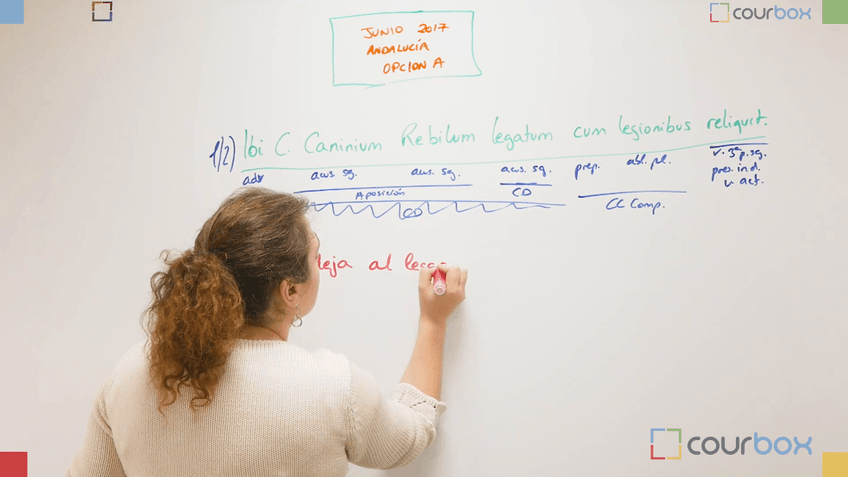 courbox
JUNIO 2017
ANDALUCÍA
OPCION A
1/2) Ibi C. Caninium Rebilum legatum cum legionibus reliquit.
adv acus. sg. acus. sg. acus. sg. prep. abl. pl. v. 3ª p. sg.
pres. ind.
v. act.
Aposición CD
CD CC Comp.
deja al
courbox